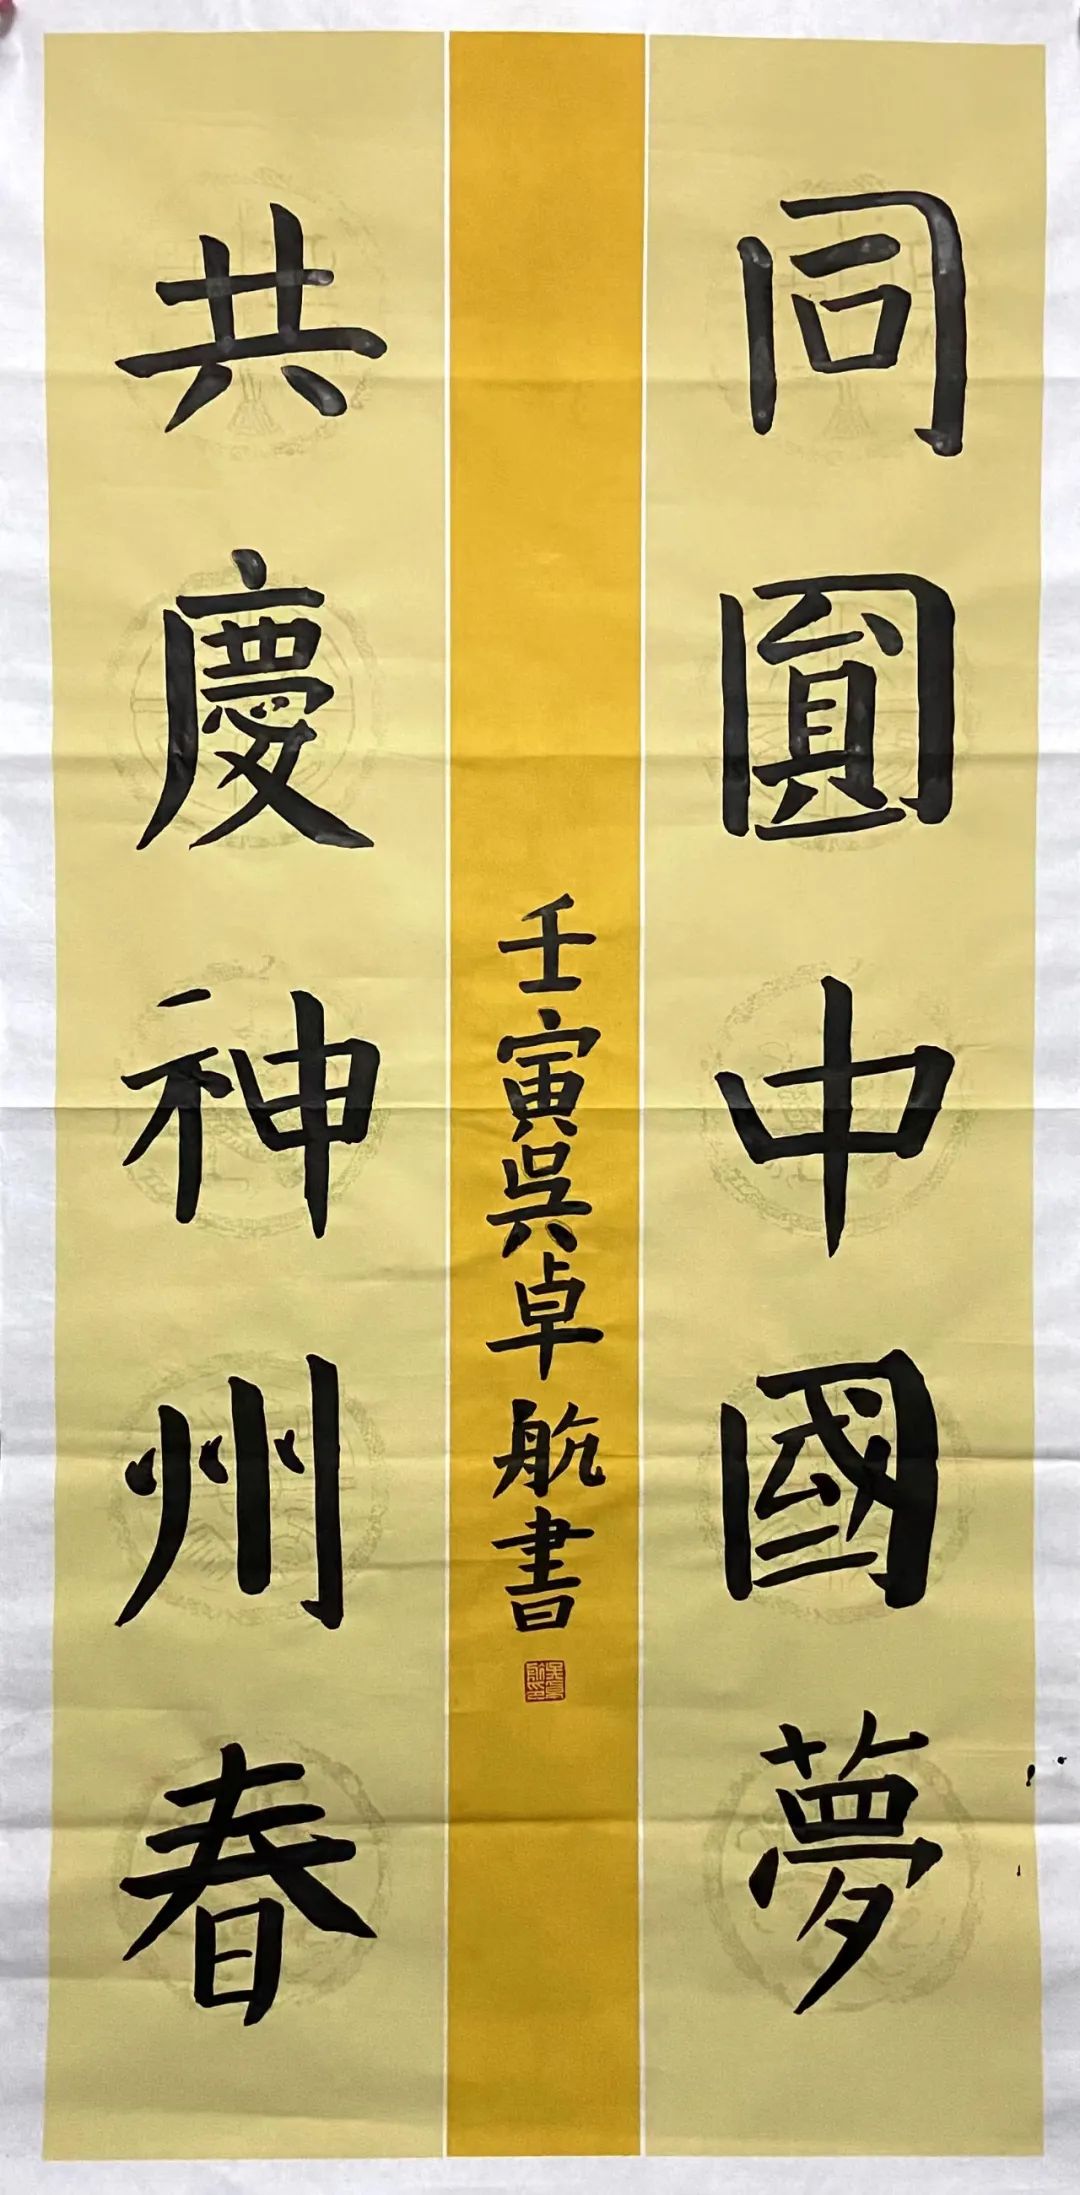 同圓中國夢
共慶神州春
壬寅吳卓航書